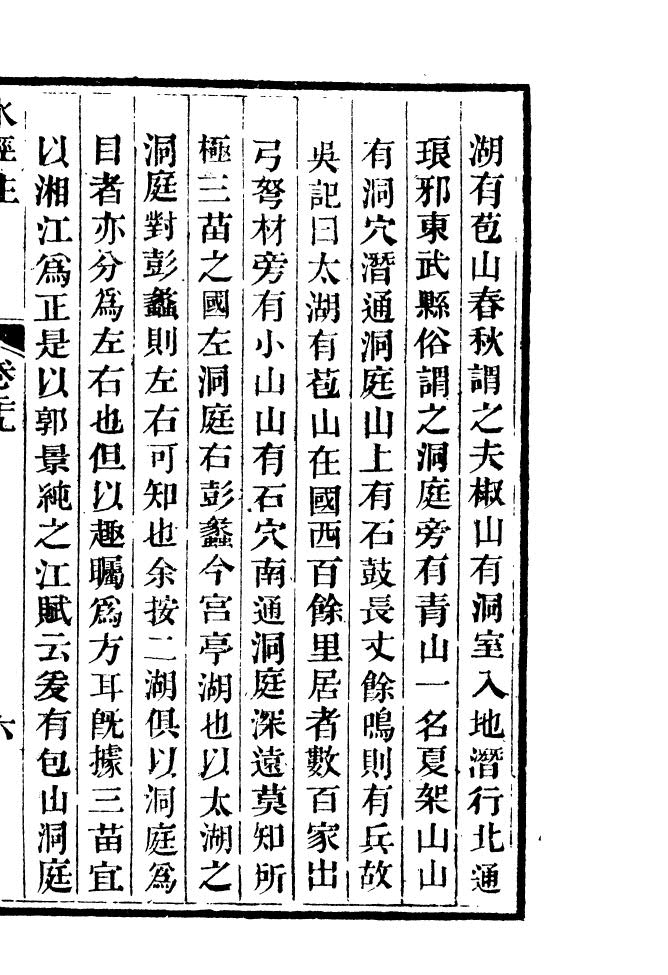 湖有苞山春秋謂之夫椒山有洞室入地潛行北通
琅邪東武縣俗謂之洞庭旁有青山一名夏架山山
有洞穴潛通洞庭山上有石鼓長丈餘鳴則有兵故
吳記曰太湖有苞山在國西百餘里居者數百家出
弓弩材旁有小山山有石穴南通洞庭深遠莫知所
極三苗之國左洞庭右彭蠡今宮亭湖也以太湖之
洞庭對彭蠡則左右可知也余按二湖俱以洞庭爲
目者亦分爲左右也但以趣矚爲方耳旣據三苗宜
以湘江爲正是以郭景純之江賦云爰有包山洞庭
水經注
六